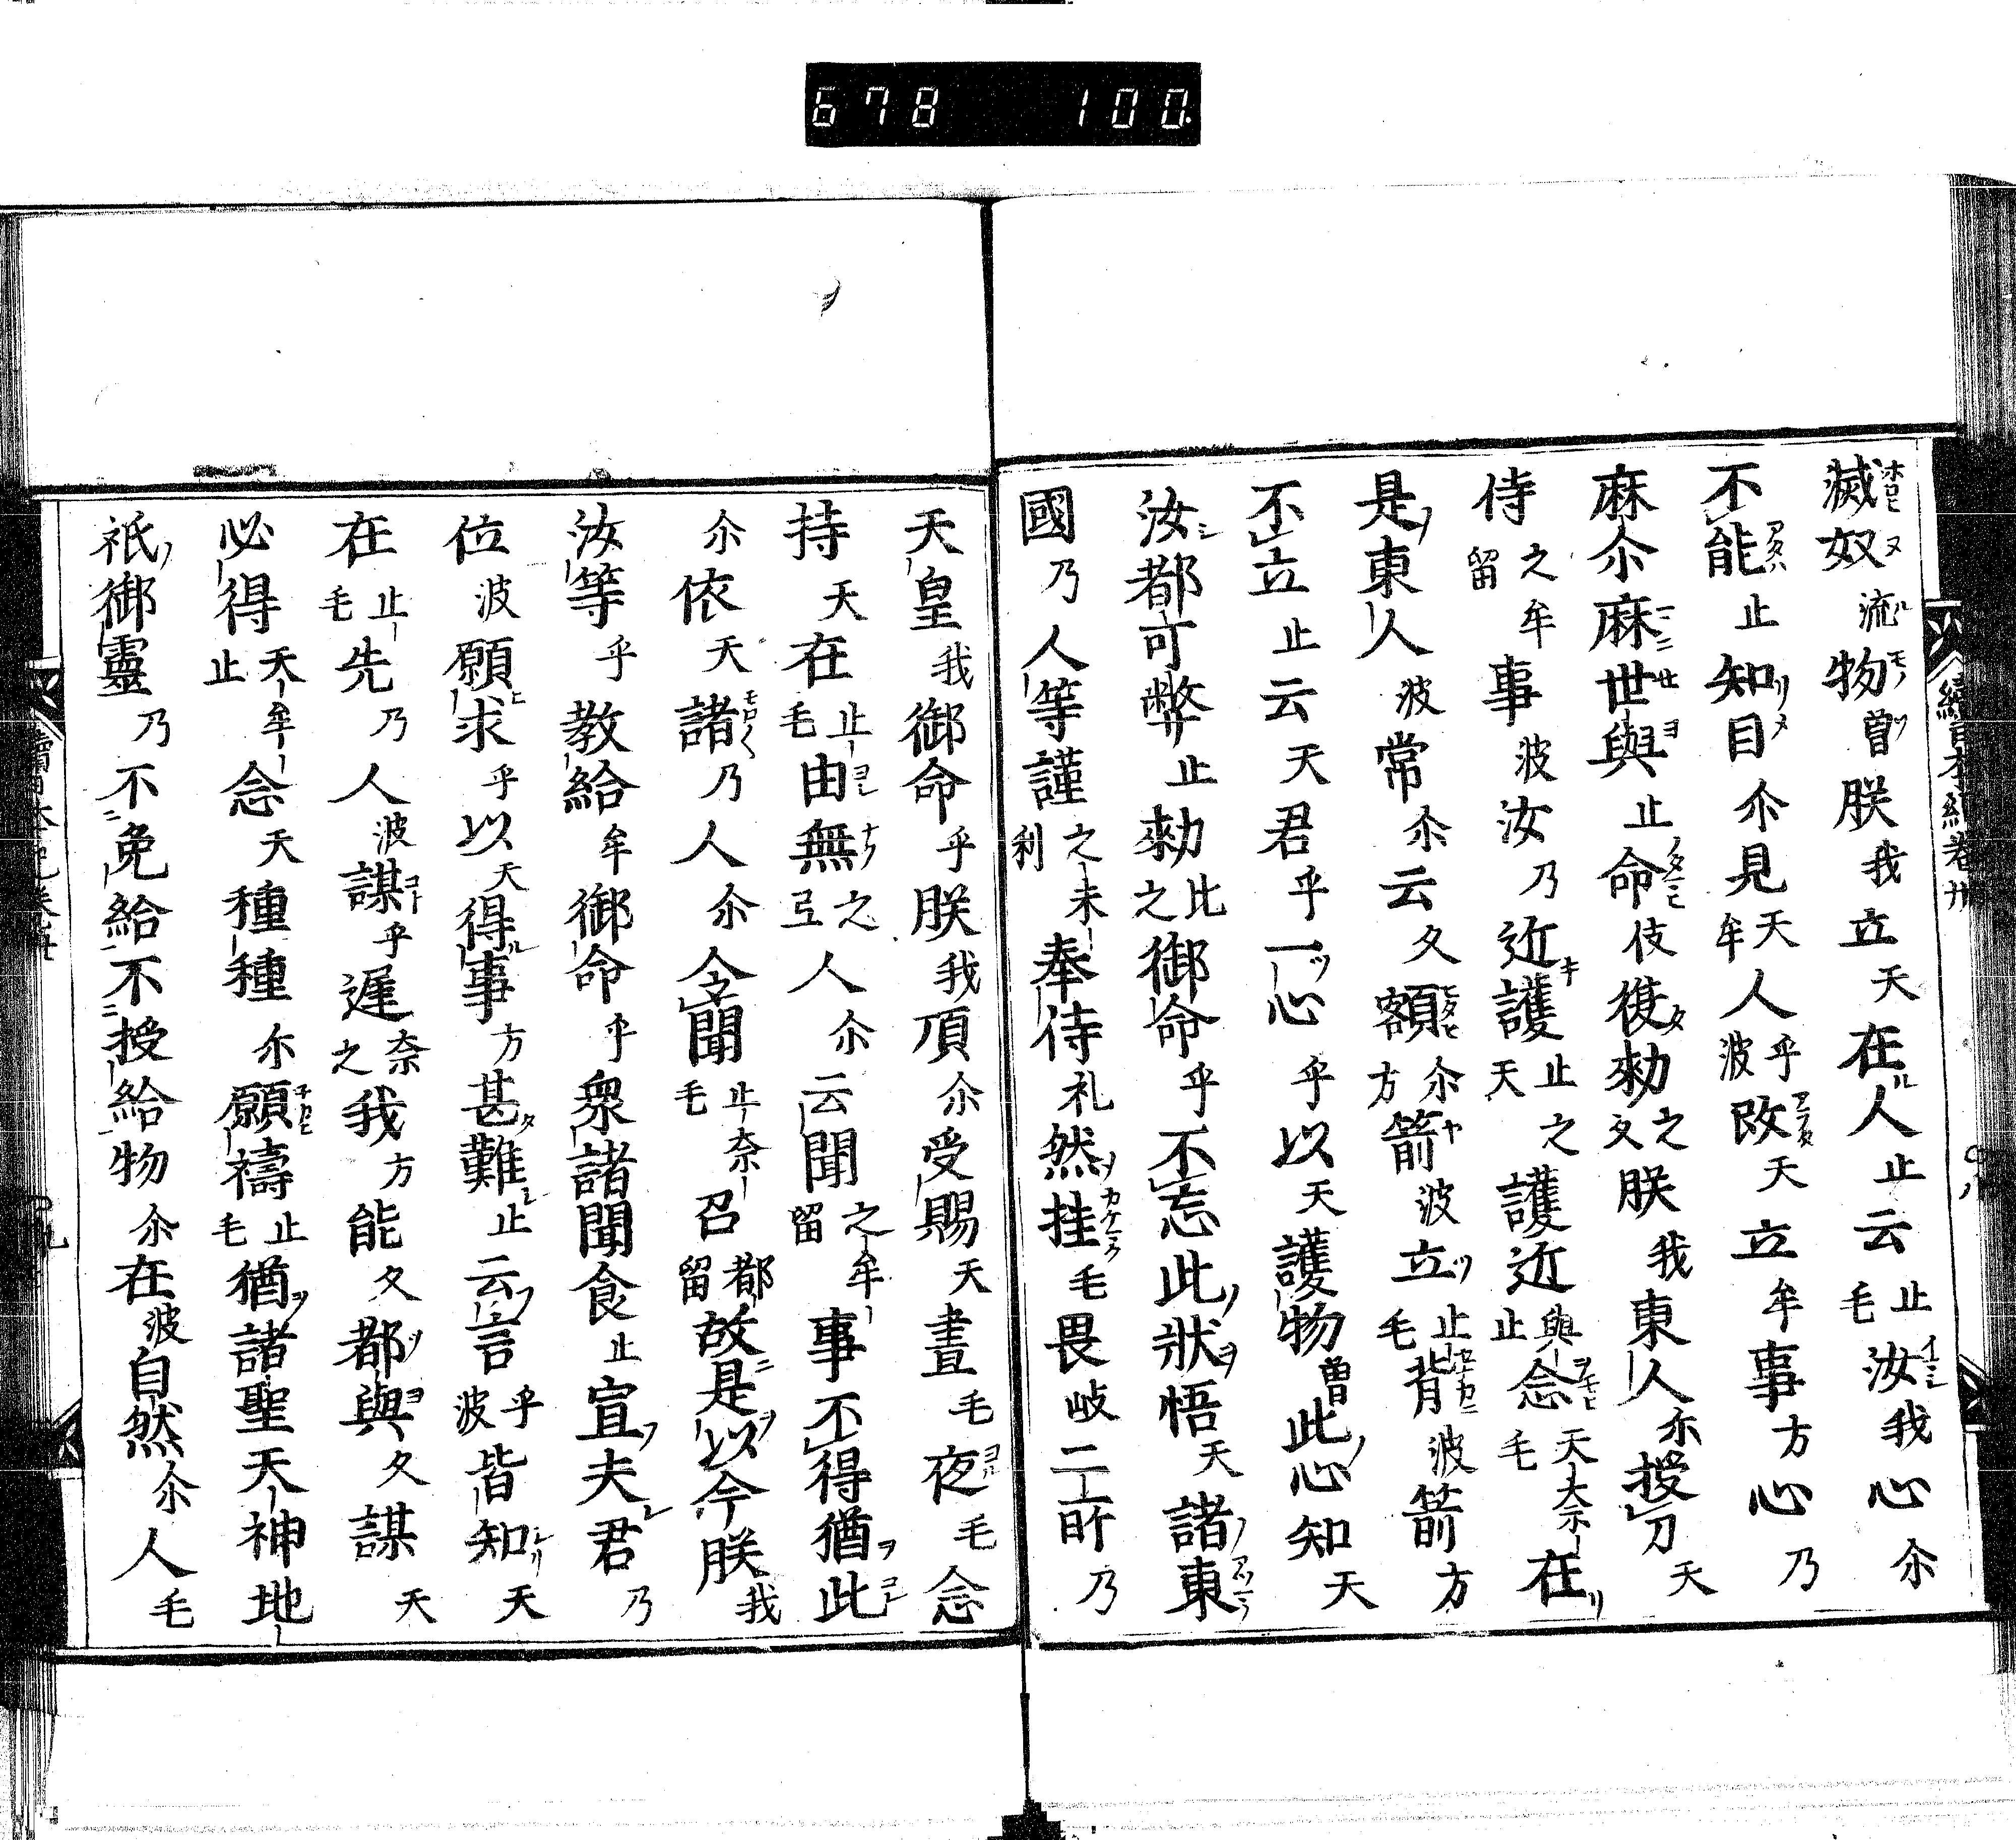 678 100.
滅奴流物曽朕我立天在人止云止毛汝我心尒
不能止知目尒見天牟人乎波改天立牟事方心乃
麻尒麻世與止命伎復勅之久朕我東人尒授刀天
侍之牟留事波汝乃近護止之天護近與止念天奈毛在
是東人波常尒云久額尒方箭波立止毛背波箭方
不立止云天君乎一心乎以天護物曽此心知天
汝都可弊止勅比之御命乎不忘此狀悟天諸東
國乃人等謹之末利奉侍礼然挂毛畏岐二所乃
天皇我御命乎朕我頂尒受賜天晝毛夜毛念
持天在止毛由無之弖人尒云聞之牟留事不得猶此
尒依天諸乃人尒令聞止奈毛召都留故是以今朕我
汝等乎教給牟御命乎衆諸聞食止宣夫君乃
位波願求乎以天得事方甚難止云言乎波皆知天
在止毛先乃人波謀乎遲奈之我方能久都與久謀天
必得天牟止念天種種尒願禱止毛猶諸聖天神地
祇御靈乃不免給不授給物尒在波自然尒人毛